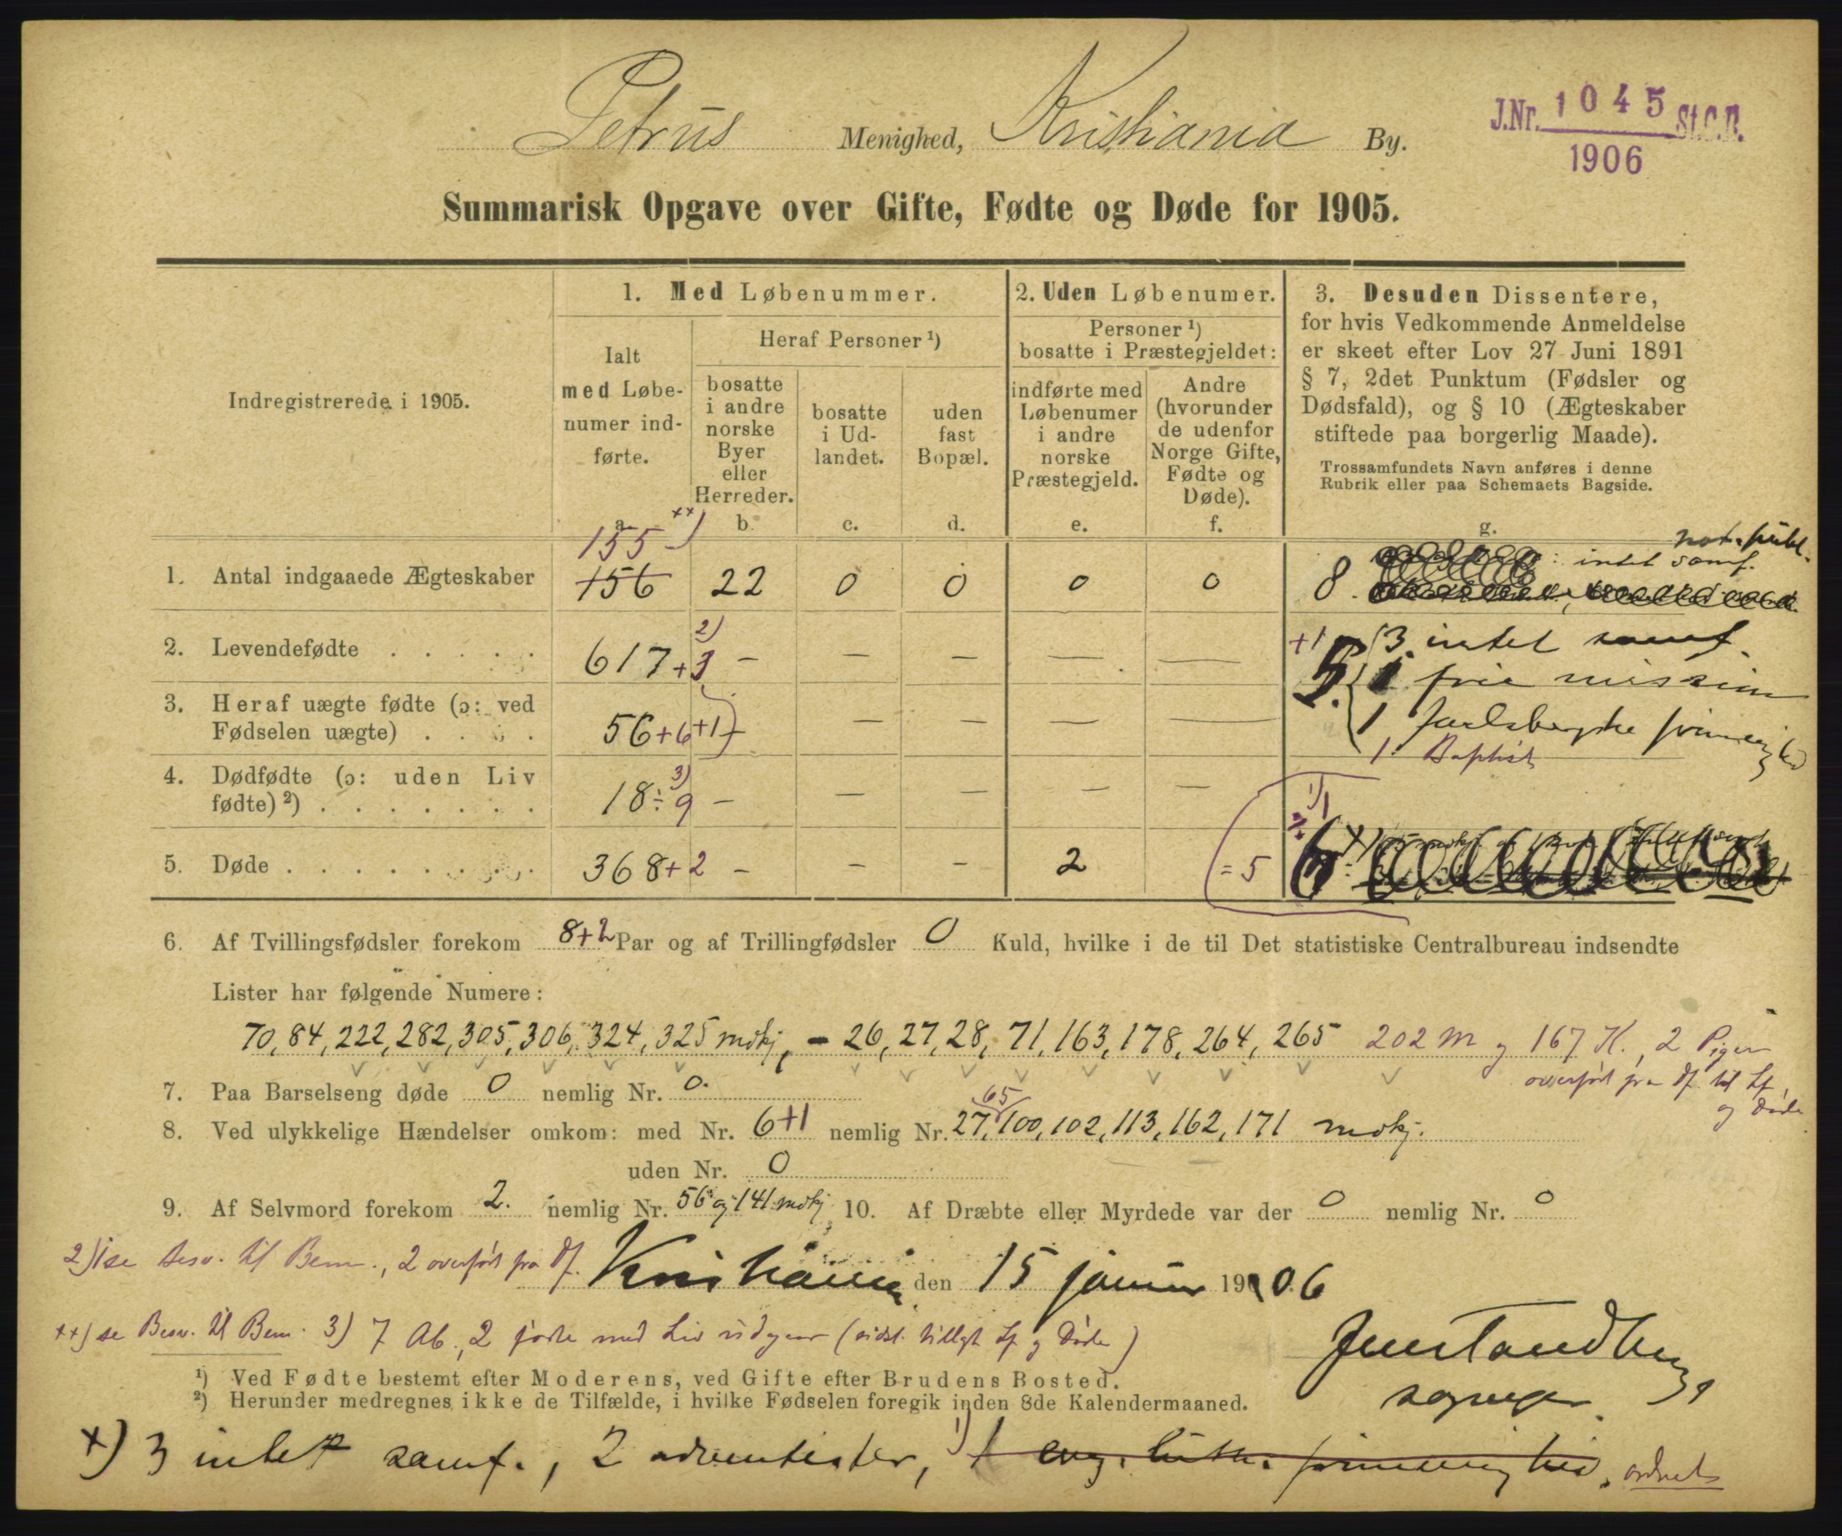 Petrus Menighed, Kristiania By.
J.Nr. 1045 St.C.B.
1906
Summarisk Opgave over Gifte, Fødte og Døde for 1905.
Indregistrerede i 1905.
1. Med Løbenummer.
Ialt
med Løbe-
numer ind-
førte.
a.
Heraf Personer ¹)
bosatte
i andre
norske
Byer
eller
Herreder.
b.
bosatte
i Ud-
landet.
c.
uden
fast
Bopæl.
d.
2. Uden Løbenumer.
Personer ¹)
bosatte i Præstegjeldet:
indførte med
Løbenumer
i andre
norske
Præstegjeld.
e.
Andre
(hvorunder
de udenfor
Norge Gifte,
Fødte og
Døde).
f.
3. Desuden Dissentere,
for hvis Vedkommende Anmeldelse
er skeet efter Lov 27 Juni 1891
§ 7, 2det Punktum (Fødsler og
Dødsfald), og § 10 (Ægteskaber
stiftede paa borgerlig Maade).
Trossamfundets Navn anføres i denne
Rubrik eller paa Schemaets Bagside.
g.
155 ××)
1. Antal indgaaede Ægteskaber 156 22 0 0 0 0 8 intet samf.
2. Levendefødte 617 + 3 2) — — — — — +1 5. 3 intet samf.
1 frie mission
3. Heraf uægte fødte (ɔ: ved
Fødselen uægte) 56 + 6 + 1) — — — — — 1 Jarlsbergske frimenighed
1 Baptist
4. Dødfødte (ɔ: uden Liv
fødte) ²) 18 ÷ 9 3) — — — — —
5. Døde 368 + 2 — — — 2 = 5 6 ×)
6. Af Tvillingsfødsler forekom 8+2 Par og af Trillingfødsler 0 Kuld, hvilke i de til Det statistiske Centralbureau indsendte
Lister har følgende Numere:
70, 84, 222, 282, 305, 306, 324, 325 mdkj, - 26, 27, 28, 71, 163, 178, 264, 265 202 M og 167 K., 2 Piger
overført fra Df til Lf,
og Døde
7. Paa Barselseng døde 0 nemlig Nr. 0.
8. Ved ulykkelige Hændelser omkom: med Nr. 6+1 nemlig Nr. 27, 65, 100, 102, 113, 162, 171 mdkj.
uden Nr. 0
9. Af Selvmord forekom 2. nemlig Nr. 56 og 141 mdkj 10. Af Dræbte eller Myrdede var der 0 nemlig Nr. 0
2) 1 se Besv. til Bem., 2 overført fra Df.
Kristiania den 15 januar 1906
××) se Besv. til Bem. 3) 7 Ab., 2 fødte med Liv udgaar (vidst. tillagt Lf og Døde)
Jens Tandberg
sogneprest
¹) Ved Fødte bestemt efter Moderens, ved Gifte efter Brudens Bosted.
²) Herunder medregnes ikke de Tilfælde, i hvilke Fødselen foregik inden 8de Kalendermaaned.
×) 3 intet samf., 2 adventister, 1) 1 evg. luth. frimenighed.